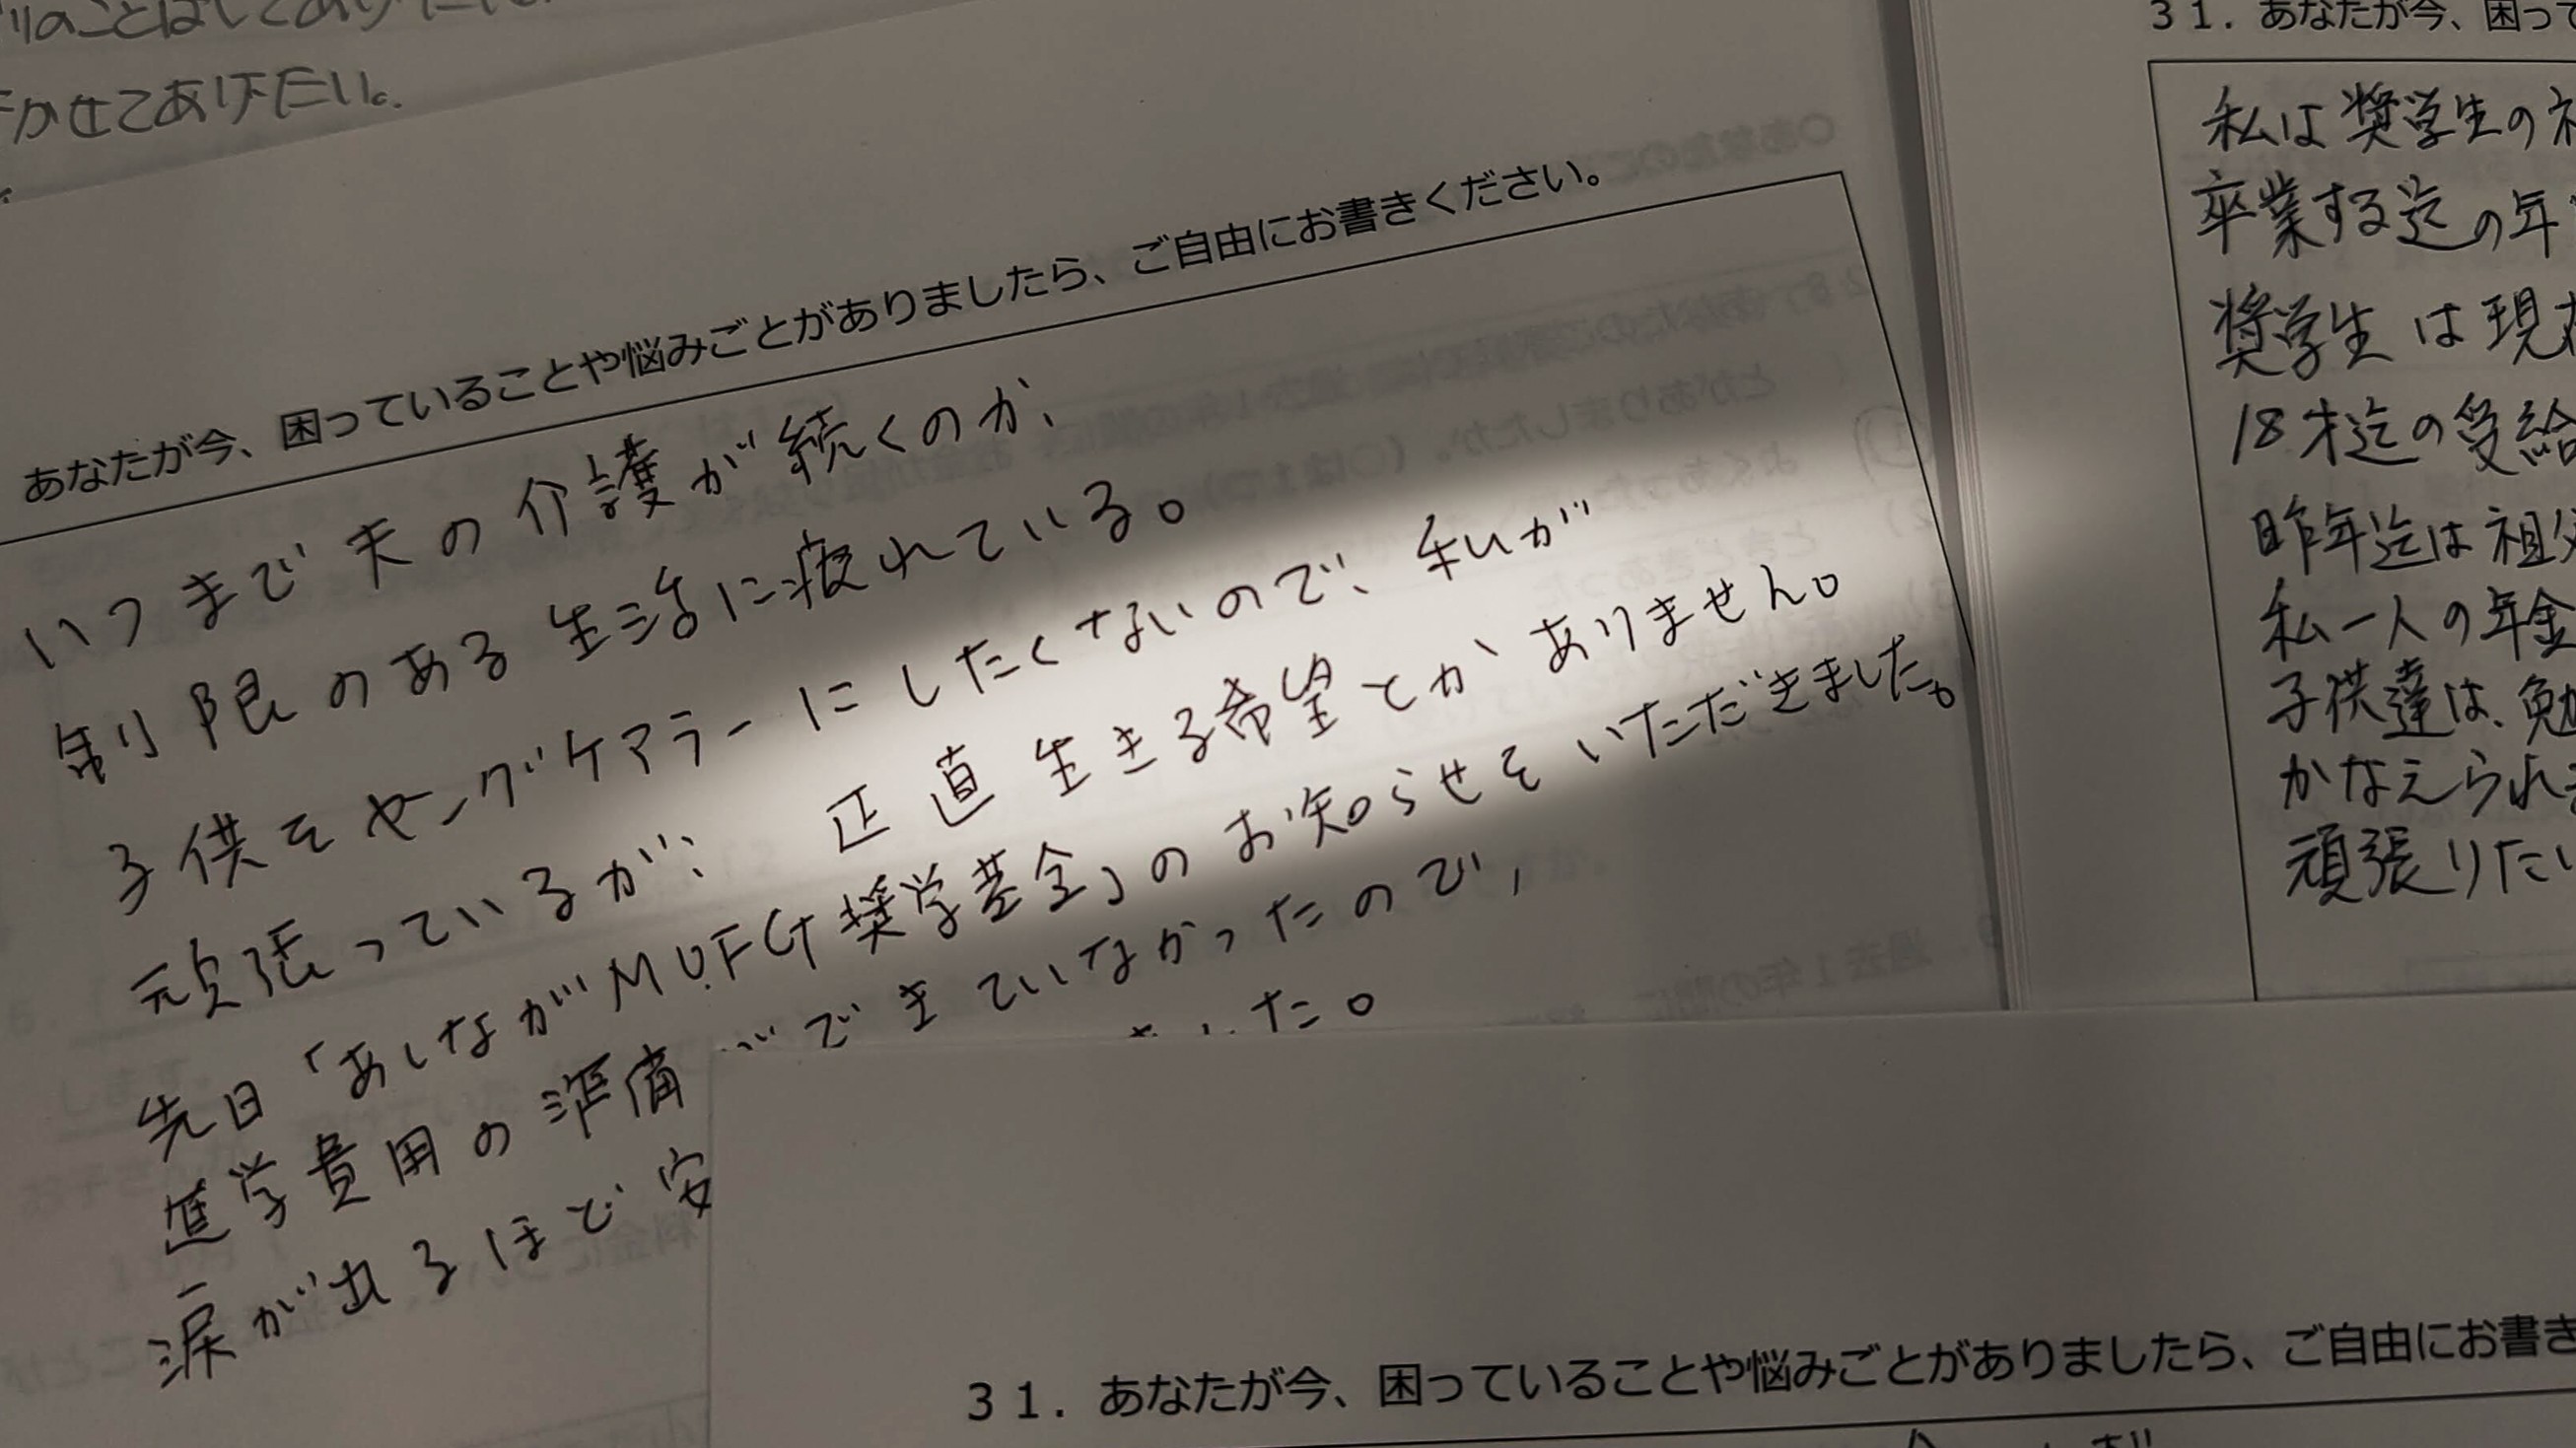 かせてあげたい。
あなたが今、困っていることや悩みごとがありましたら、ご自由にお書きください。
いつまで夫の介護が続くのか、
制限のある生活に疲れている。
子供をヤングケアラーにしたくないので、私が
頑張っているが、正直生きる希望とかありません。
先日「あしながMUFG奨学基金」のお知らせをいただきました。
進学費用の準備ができていなかったので、
涙が出るほど安
した。
31. あなたが今、困って
私は奨学生の
卒業する迄の年
奨学生は現
18才迄の受給
昨年迄は祖父
私一人の年金
子供達は、勉
かなえられ
頑張りたい
31. あなたが今、困っていることや悩みごとがありましたら、ご自由にお書き